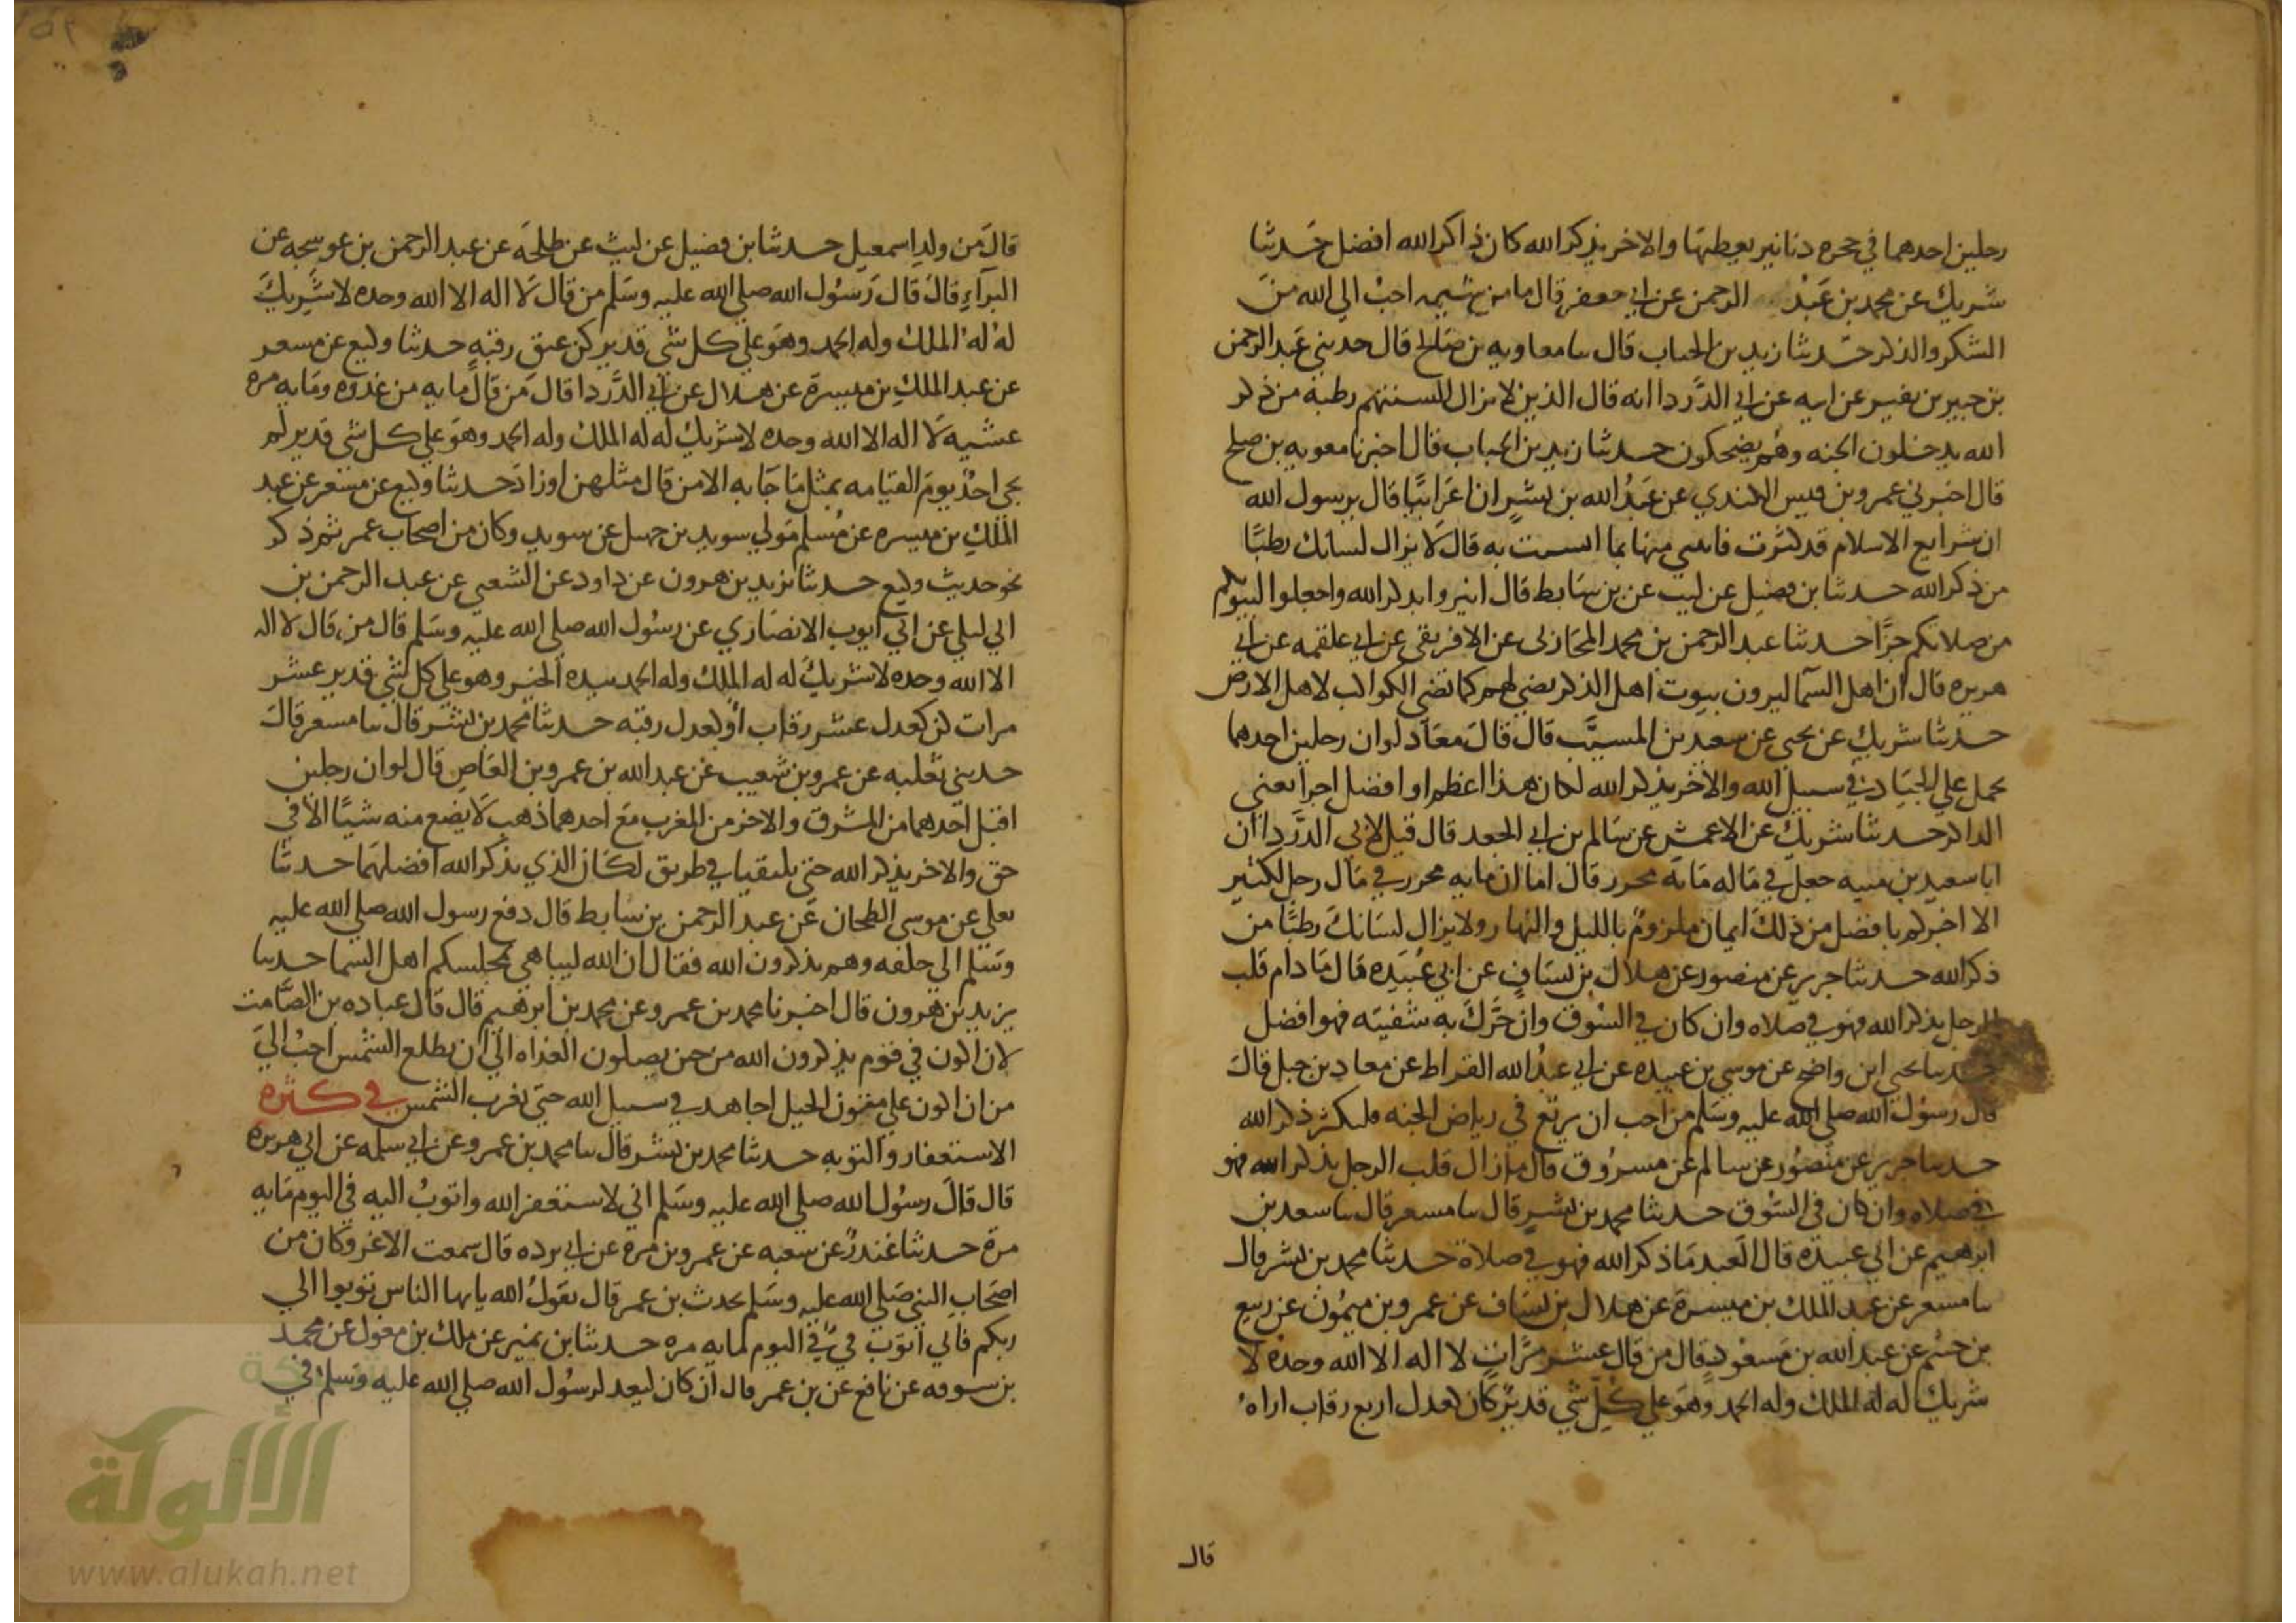 رجلين احدهما في حجره دنانير يعطيها والاخر يذكر الله كان ذاكر الله افضل حدثنا
شريك عن محمد بن عبد الرحمن عن ابي جعفر قال ما من شي احب الي الله من
الشكر والذكر حدثنا زيد بن الحباب قال سا معاويه بن صالح قال حدثني عبد الرحمن
بن جبير بن نفير عن ابيه عن ابي الدردا انه قال الذين لا تزال السنتهم رطبة من ذكر
الله يدخلون الجنه وهم يضحكون حدثنا زيد بن الحباب قال اخبرنا معويه بن صلح
قال اخبرني عمرو بن قيس الكندي عن عبد الله بن بشر ان اعرابيا قال يرسول الله
ان شرايع الاسلام قد كثرت فانبني منها بما اتشبث به قال لا يزال لسانك رطبا
من ذكر الله حدثنا بن فضيل عن ليث عن بن سابط قال انيروا بذكر الله واجعلوا لبيوتكم
من صلاتكم جزا حدثنا عبد الرحمن بن محمد المحاربي عن الافريقي عن ابي علقمه عن ابي
هريره قال ان اهل السما ليرون بيوت اهل الذكر تضي لهم كما تضي الكواكب لاهل الارض
حدثنا شريك عن يحيي عن سعيد بن المسيب قال قال معاذ لو ان رجلين احدهما
يحمل علي الجياد في سبيل الله والاخر يذكر الله لكان هذا اعظم او افضل اجرا يعني
الذاكر حدثنا شريك عن الاعمش عن سالم بن ابي الجعد قال قيل لابي الدردا ان
ابا سعيد بن منبه جعل في ماله مائة محرر قال اما ان مايه محرر في مال رجل لكثير
الا اخبركم بافضل من ذلك ايمان ملزوم بالليل والنهار ولا يزال لسانك رطبا من
ذكر الله حدثنا جرير عن منصور عن هلال بن يساف عن ابي عبيده قال ما دام قلب
الرجل يذكر الله فهو في صلاه وان كان في السوق وان حرك به شفتيه فهو افضل
حدثنا يحيي ابن واضح عن موسي بن عبيده عن ابي عبد الله القراظ عن معاذ بن جبل قال
قال رسول الله صلي الله عليه وسلم من احب ان يرتع في رياض الجنه فليكثر ذكر الله
حدثنا جرير عن منصور عن سالم عن مسروق قال ما زال قلب الرجل يذكر الله فهو
في صلاه وان كان في السوق حدثنا محمد بن بشر قال سا مسعر قال سا سعد بن
ابرهيم عن ابي عبيدة قال العبد ما ذكر الله فهو في صلاة حدثنا محمد بن بشر قال
سا مسعر عن عبد الملك بن ميسرة عن هلال بن يساف عن عمرو بن ميمون عن ربيع
بن خثيم عن عبد الله بن مسعود قال من قال عشر مرات لا اله الا الله وحده لا
شريك له له الملك وله الحمد وهو علي كل شي قدير كان كعدل اربع رقاب اراه
قال
قال من ولد اسمعيل حدثنا بن فضيل عن ليث عن طلحه عن عبد الرحمن بن عوسجه عن
البرآء قال قال رسول الله صلي الله عليه وسلم من قال لا اله الا الله وحده لا شريك
له له الملك وله الحمد وهو علي كل شي قدير كن كعتق رقبه حدثنا وكيع عن مسعر
عن عبد الملك بن ميسرة عن هلال عن ابي الدردا قال من قال مايه من غدوه ومايه مره
عشيه لا اله الا الله وحده لا شريك له له الملك وله الحمد وهو علي كل شي قدير لم
يجي احد يوم القيامه بمثل ما جا به الا من قال مثلهن او زاد حدثنا وكيع عن مسعر عن عبد
الملك بن ميسره عن مسلم مولي سويد بن جهيل عن سويد وكان من اصحاب عمر ثم ذكر
نحو حديث وكيع حدثنا يزيد بن هرون عن داود عن الشعبي عن عبد الرحمن بن
ابي ليلي عن ابي ايوب الانصاري عن رسول الله صلي الله عليه وسلم قال من قال لا اله
الا الله وحده لا شريك له له الملك وله الحمد بيده الخير وهو علي كل شي قدير عشر
مرات كن كعدل عشر رقاب او كعدل رقبه حدثنا محمد بن بشر قال سا مسعر قال
حدثني تعلبه عن عمرو بن شعيب عن عبد الله بن عمرو بن العاص قال لو ان رجلين
اقبل احدهما من المشرق والاخر من المغرب مع احدهما ذهب لا يضع منه شيئا الا في
حق والاخر يذكر الله حتي يلتقيا في طريق لكان الذي يذكر الله افضلهما حدثنا
يعلي عن موسي الطحان عن عبد الرحمن بن سابط قال دفع رسول الله صلي الله عليه
وسلم الي حلقه وهم يذكرون الله فقال ان الله ليباهي بمجلسكم اهل السما حدثنا
يزيد بن هرون قال اخبرنا محمد بن عمرو عن محمد بن ابرهيم قال قال عباده بن الصامت
لان اكون في قوم يذكرون الله من حين يصلون الغداه الي ان يطلع الشمس احب الي
من ان اكون علي متون الخيل اجاهد في سبيل الله حتي تغرب الشمس في كثره
الاستغفار والتوبه حدثنا محمد بن بشر قال سا محمد بن عمرو عن ابي سلمه عن ابي هريرة
قال قال رسول الله صلي الله عليه وسلم اني لاستغفر الله واتوب اليه في اليوم مايه
مرة حدثنا غندر عن شعبه عن عمرو بن مرة عن ابي برده قال سمعت الاغر وكان من
اصحاب النبي صلي الله عليه وسلم يحدث بن عمر قال يقول الله يايها الناس توبوا الي
ربكم فاني اتوب في اليوم مايه مره حدثنا بن نمير عن ملك بن مغول عن محمد
بن سوقه عن نافع عن بن عمر قال ان كان ليعد لرسول الله صلي الله عليه وسلم في
الألوكة
www.alukah.net